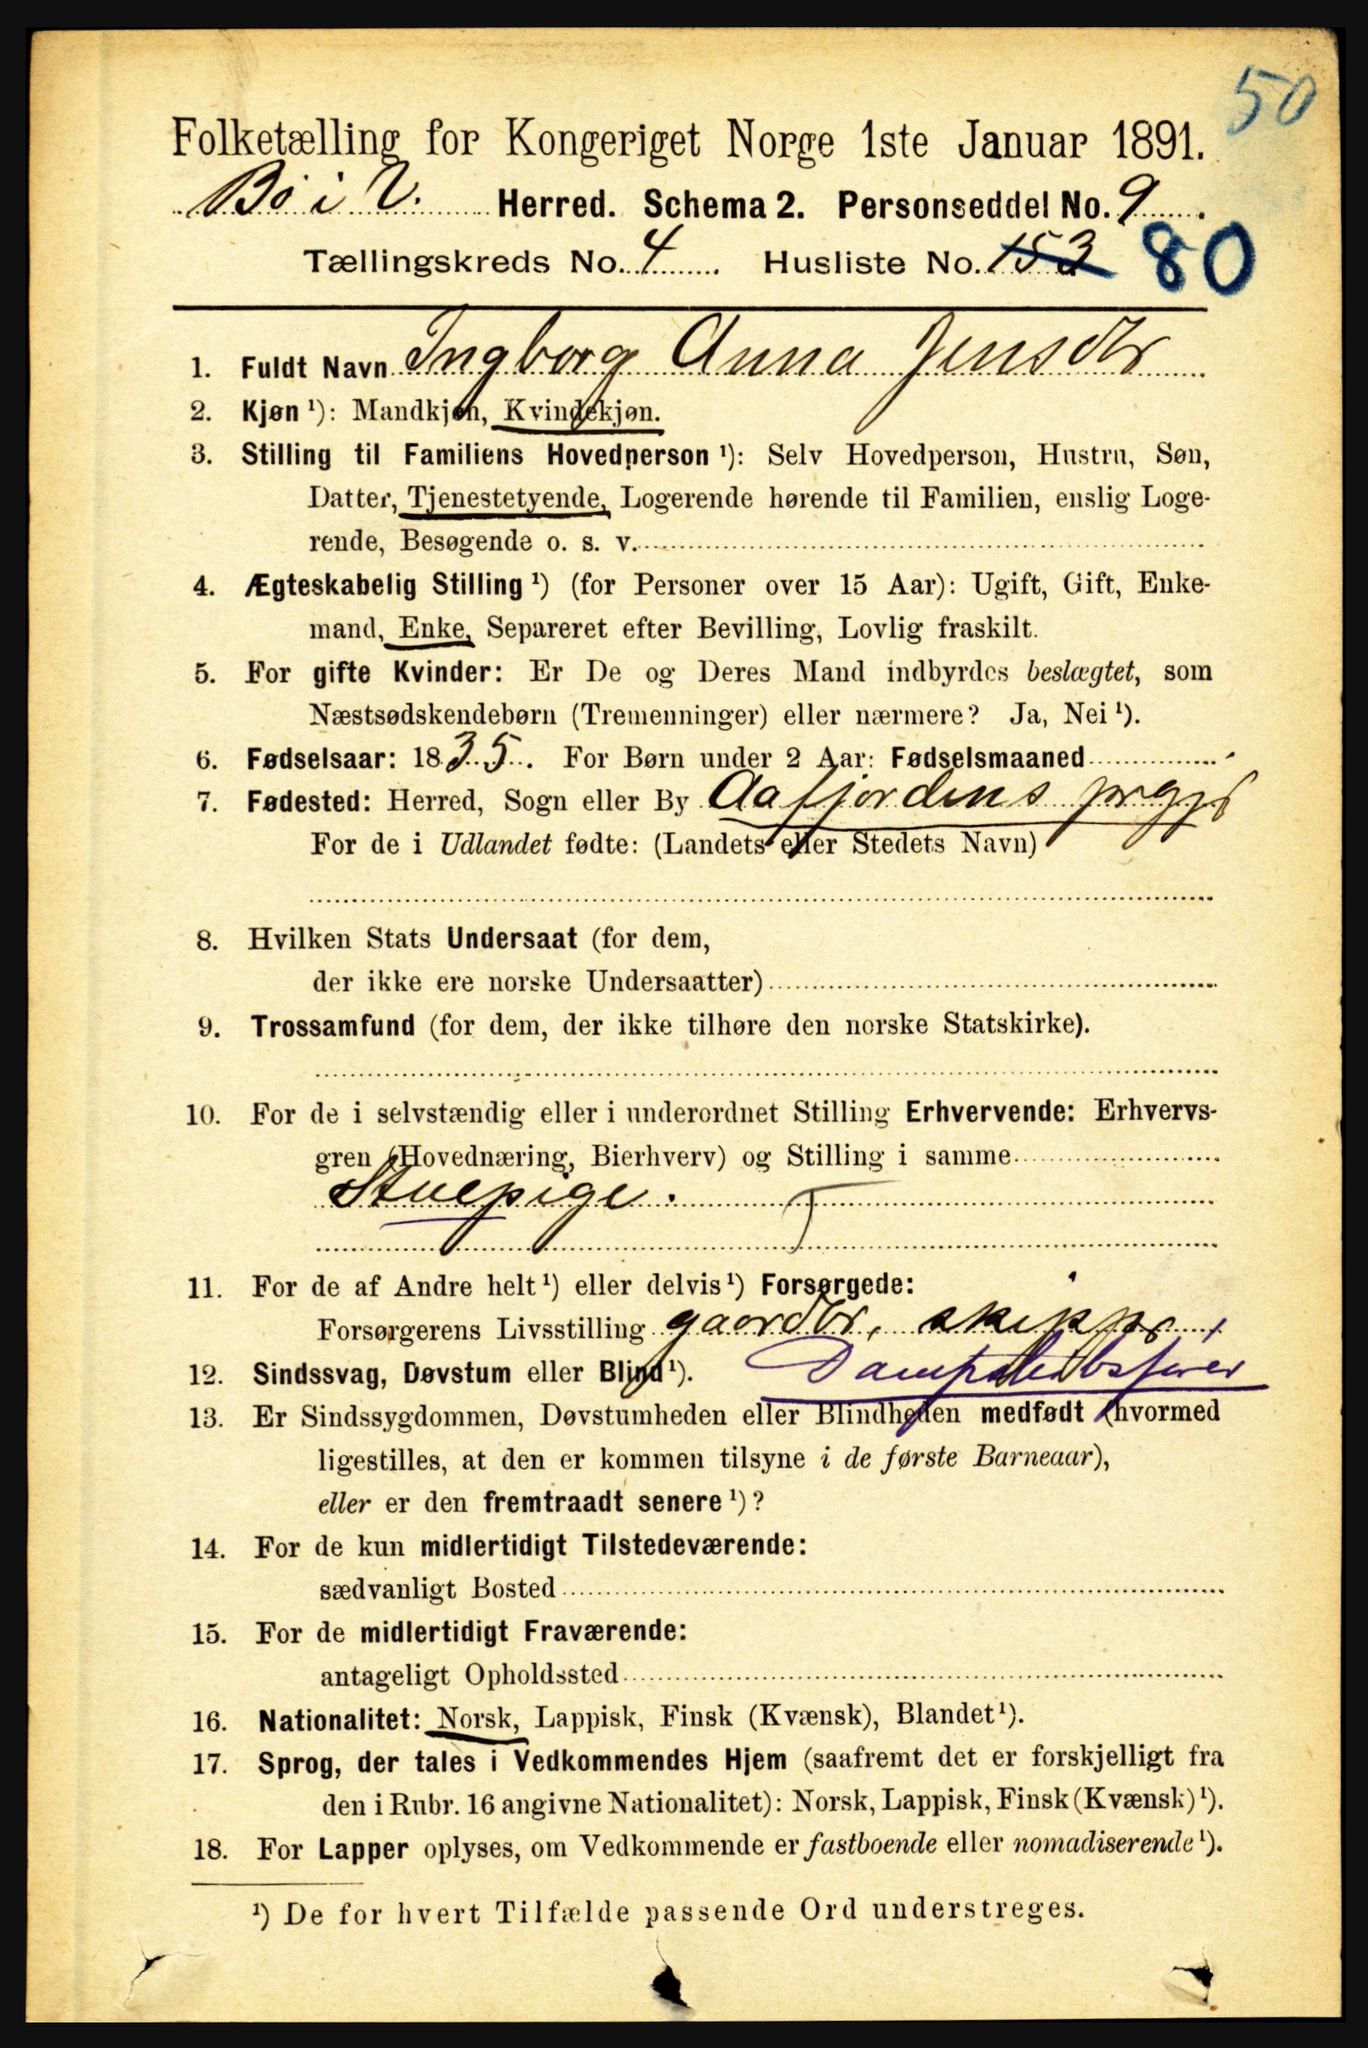 50
Folketælling for Kongeriget Norge 1ste Januar 1891.
Bö i V. Herred. Schema 2. Personseddel No. 9.
Tællingskreds No. 4 Husliste No. 153 80
1. Fuldt Navn Ingborg Anna Jensdtr
2. Kjøn ¹): Mandkjøn, Kvindekjøn.
3. Stilling til Familiens Hovedperson ¹): Selv Hovedperson, Hustru, Søn,
Datter, Tjenestetyende, Logerende hørende til Familien, enslig Loge-
rende, Besøgende o. s. v.
4. Ægteskabelig Stilling ¹) (for Personer over 15 Aar): Ugift, Gift, Enke-
mand, Enke, Separeret efter Bevilling, Lovlig fraskilt.
5. For gifte Kvinder: Er De og Deres Mand indbyrdes beslægtet, som
Næstsødskendebørn (Tremenninger) eller nærmere? Ja, Nei ¹).
6. Fødselsaar: 1835. For Børn under 2 Aar: Fødselsmaaned
7. Fødested: Herred, Sogn eller By Aafjordens prgjl
For de i Udlandet fødte: (Landets eller Stedets Navn)
8. Hvilken Stats Undersaat (for dem,
der ikke ere norske Undersaatter)
9. Trossamfund (for dem, der ikke tilhøre den norske Statskirke).
10. For de i selvstændig eller i underordnet Stilling Erhvervende: Erhvervs-
gren (Hovednæring, Bierhverv) og Stilling i samme
Stuepige. T
11. For de af Andre helt ¹) eller delvis ¹) Forsørgede:
Forsørgerens Livsstilling gaardbr, skippr,
12. Sindssvag, Døvstum eller Blind ¹). Dampskibsfører
13. Er Sindssygdommen, Døvstumheden eller Blindheden medfødt (hvormed
ligestilles, at den er kommen tilsyne i de første Barneaar),
eller er den fremtraadt senere ¹)?
14. For de kun midlertidigt Tilstedeværende:
sædvanligt Bosted
15. For de midlertidigt Fraværende:
antageligt Opholdssted
16. Nationalitet: Norsk, Lappisk, Finsk (Kvænsk), Blandet ¹).
17. Sprog, der tales i Vedkommendes Hjem (saafremt det er forskjelligt fra
den i Rubr. 16 angivne Nationalitet): Norsk, Lappisk, Finsk (Kvænsk) ¹).
18. For Lapper oplyses, om Vedkommende er fastboende eller nomadiserende ¹).
¹) De for hvert Tilfælde passende Ord understreges.